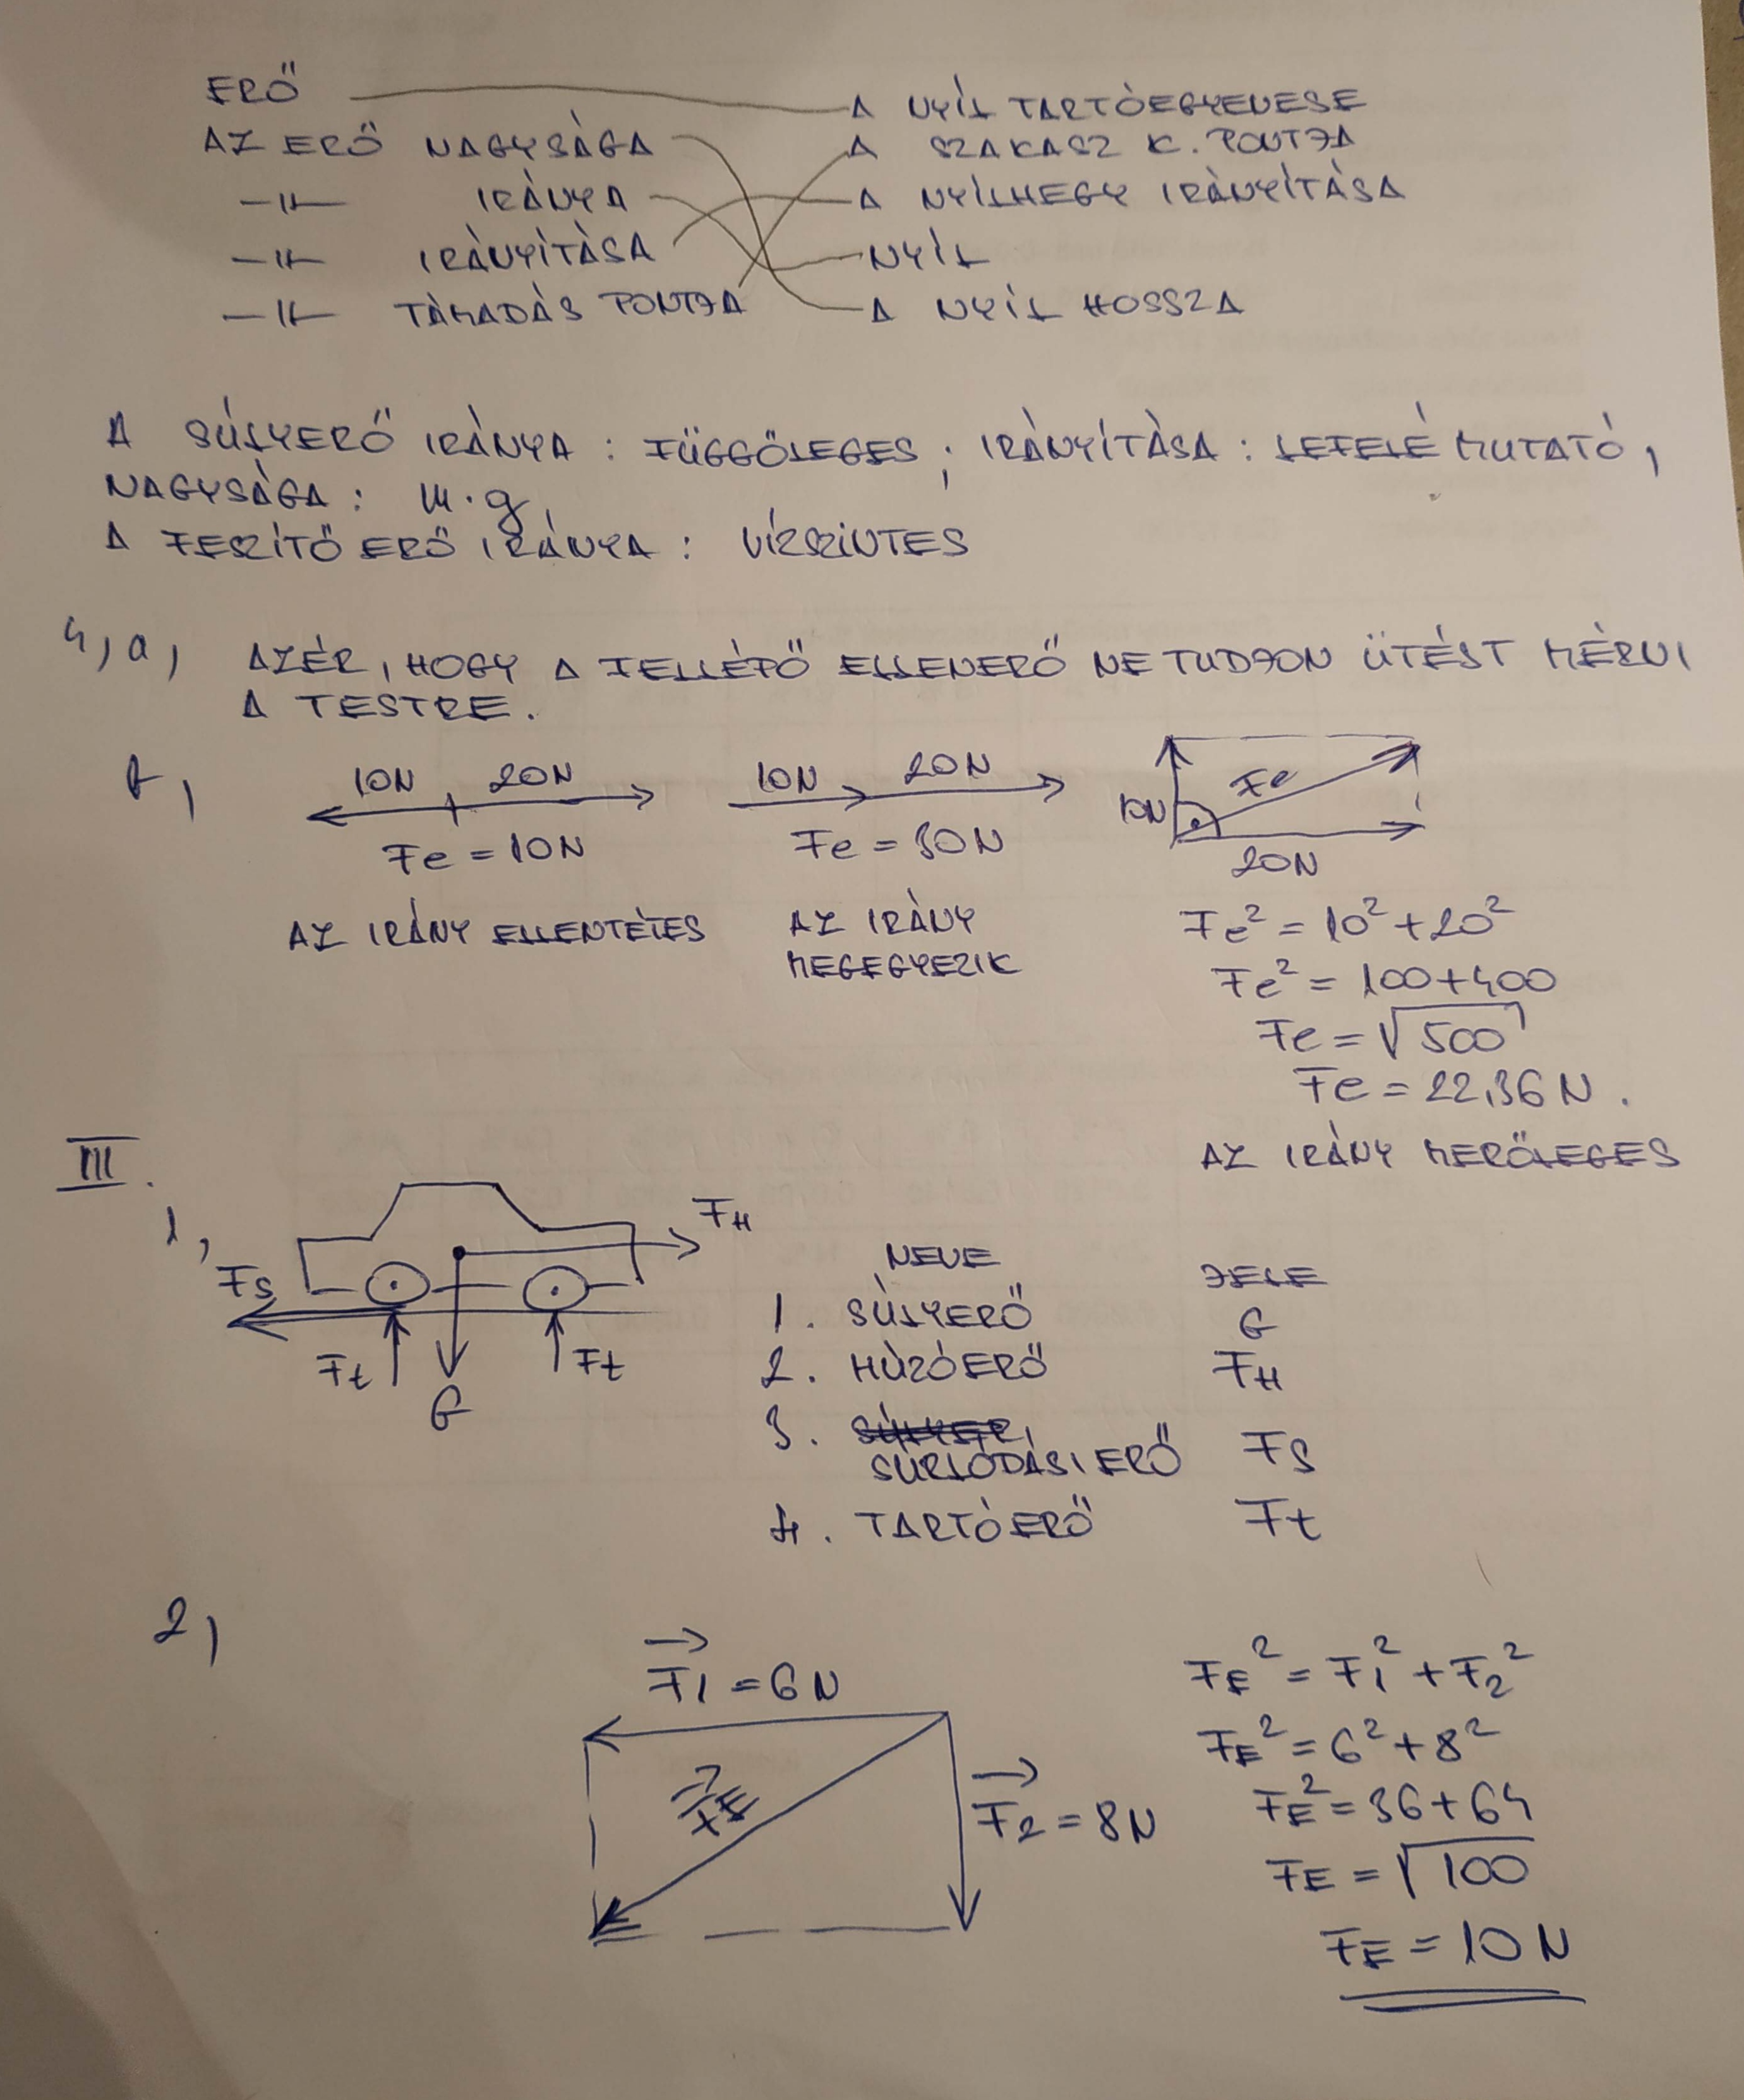 ERŐ
A NYÍL TARTÓEGYENESE
AZ ERŐ NAGYSÁGA
A SZAKASZ K. PONTJA
-||- IRÁNYA
A NYÍLHEGY IRÁNYÍTÁSA
-||- IRÁNYÍTÁSA
NYÍL
-||- TÁMADÁS PONTJA
A NYÍL HOSSZA
A SÚLYERŐ IRÁNYA : FÜGGŐLEGES ; IRÁNYÍTÁSA : LEFELÉ MUTATÓ,
NAGYSÁGA : m·g,
A FESZÍTŐ ERŐ IRÁNYA : VÍZSZINTES
4, a, AZÉR, HOGY A FELLÉPŐ ELLENERŐ NE TUDJON ÜTÉST MÉRNI
A TESTRE.
b,
10N 20N
Fe = 10N
AZ IRÁNY ELLENTÉTES
10N 20N
Fe = 30N
AZ IRÁNY
MEGEGYEZIK
10N Fe
20N
Fe² = 10² + 20²
Fe² = 100 + 400
Fe = √500
Fe = 22,36 N.
AZ IRÁNY MERŐLEGES
III.
1,
FH
Fs
Ft
G
Ft
NEVE JELE
1. SÚLYERŐ G
2. HÚZÓERŐ FH
3. SÚRLÓDÁSI ERŐ FS
4. TARTÓERŐ Ft
2,
F1 = 6N
FE
F2 = 8N
FE² = F1² + F2²
FE² = 6² + 8²
FE² = 36 + 64
FE = √100
FE = 10 N